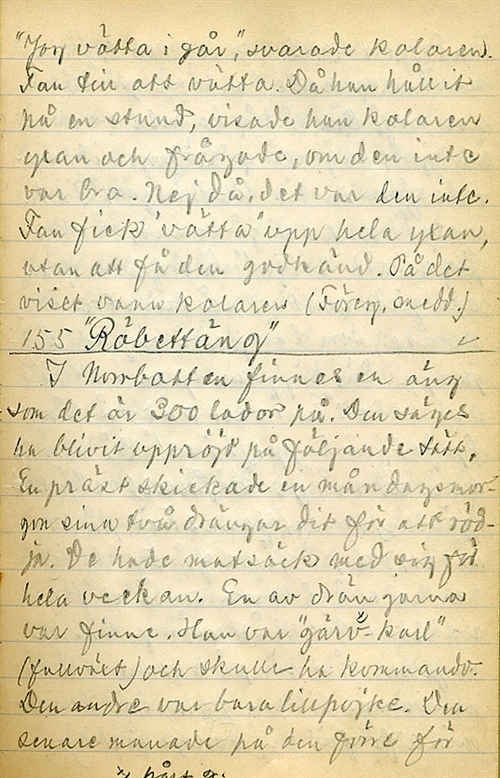 "Jog vätta i går," svarade kolaren.
Fan till att vätta. Då han hållit
på en stund, visade han kolaren
yxan och frågade, om den inte
var bra. Nej då, det var den inte.
Fan fick "vätta" upp hela yxan,
utan att få den godkänd. På det
viset vann kolaren (Föreg. medd.)
155 "Råbettäng"
I Norrbotten finnes en äng
som det är 300 lador på. Den säges
ha blivit uppröjd på följande sätt.
En präst skickade en måndagsmor-
gon sina två drängar dit för att röd-
ja. De hade matsäck med sig för
hela veckan. En av drängarna
var finne. Han var "gärv-karl"
(fullväxt) och skulle ha kommando.
Den andre var bara lillpojke. Den
senare manade på den förre för